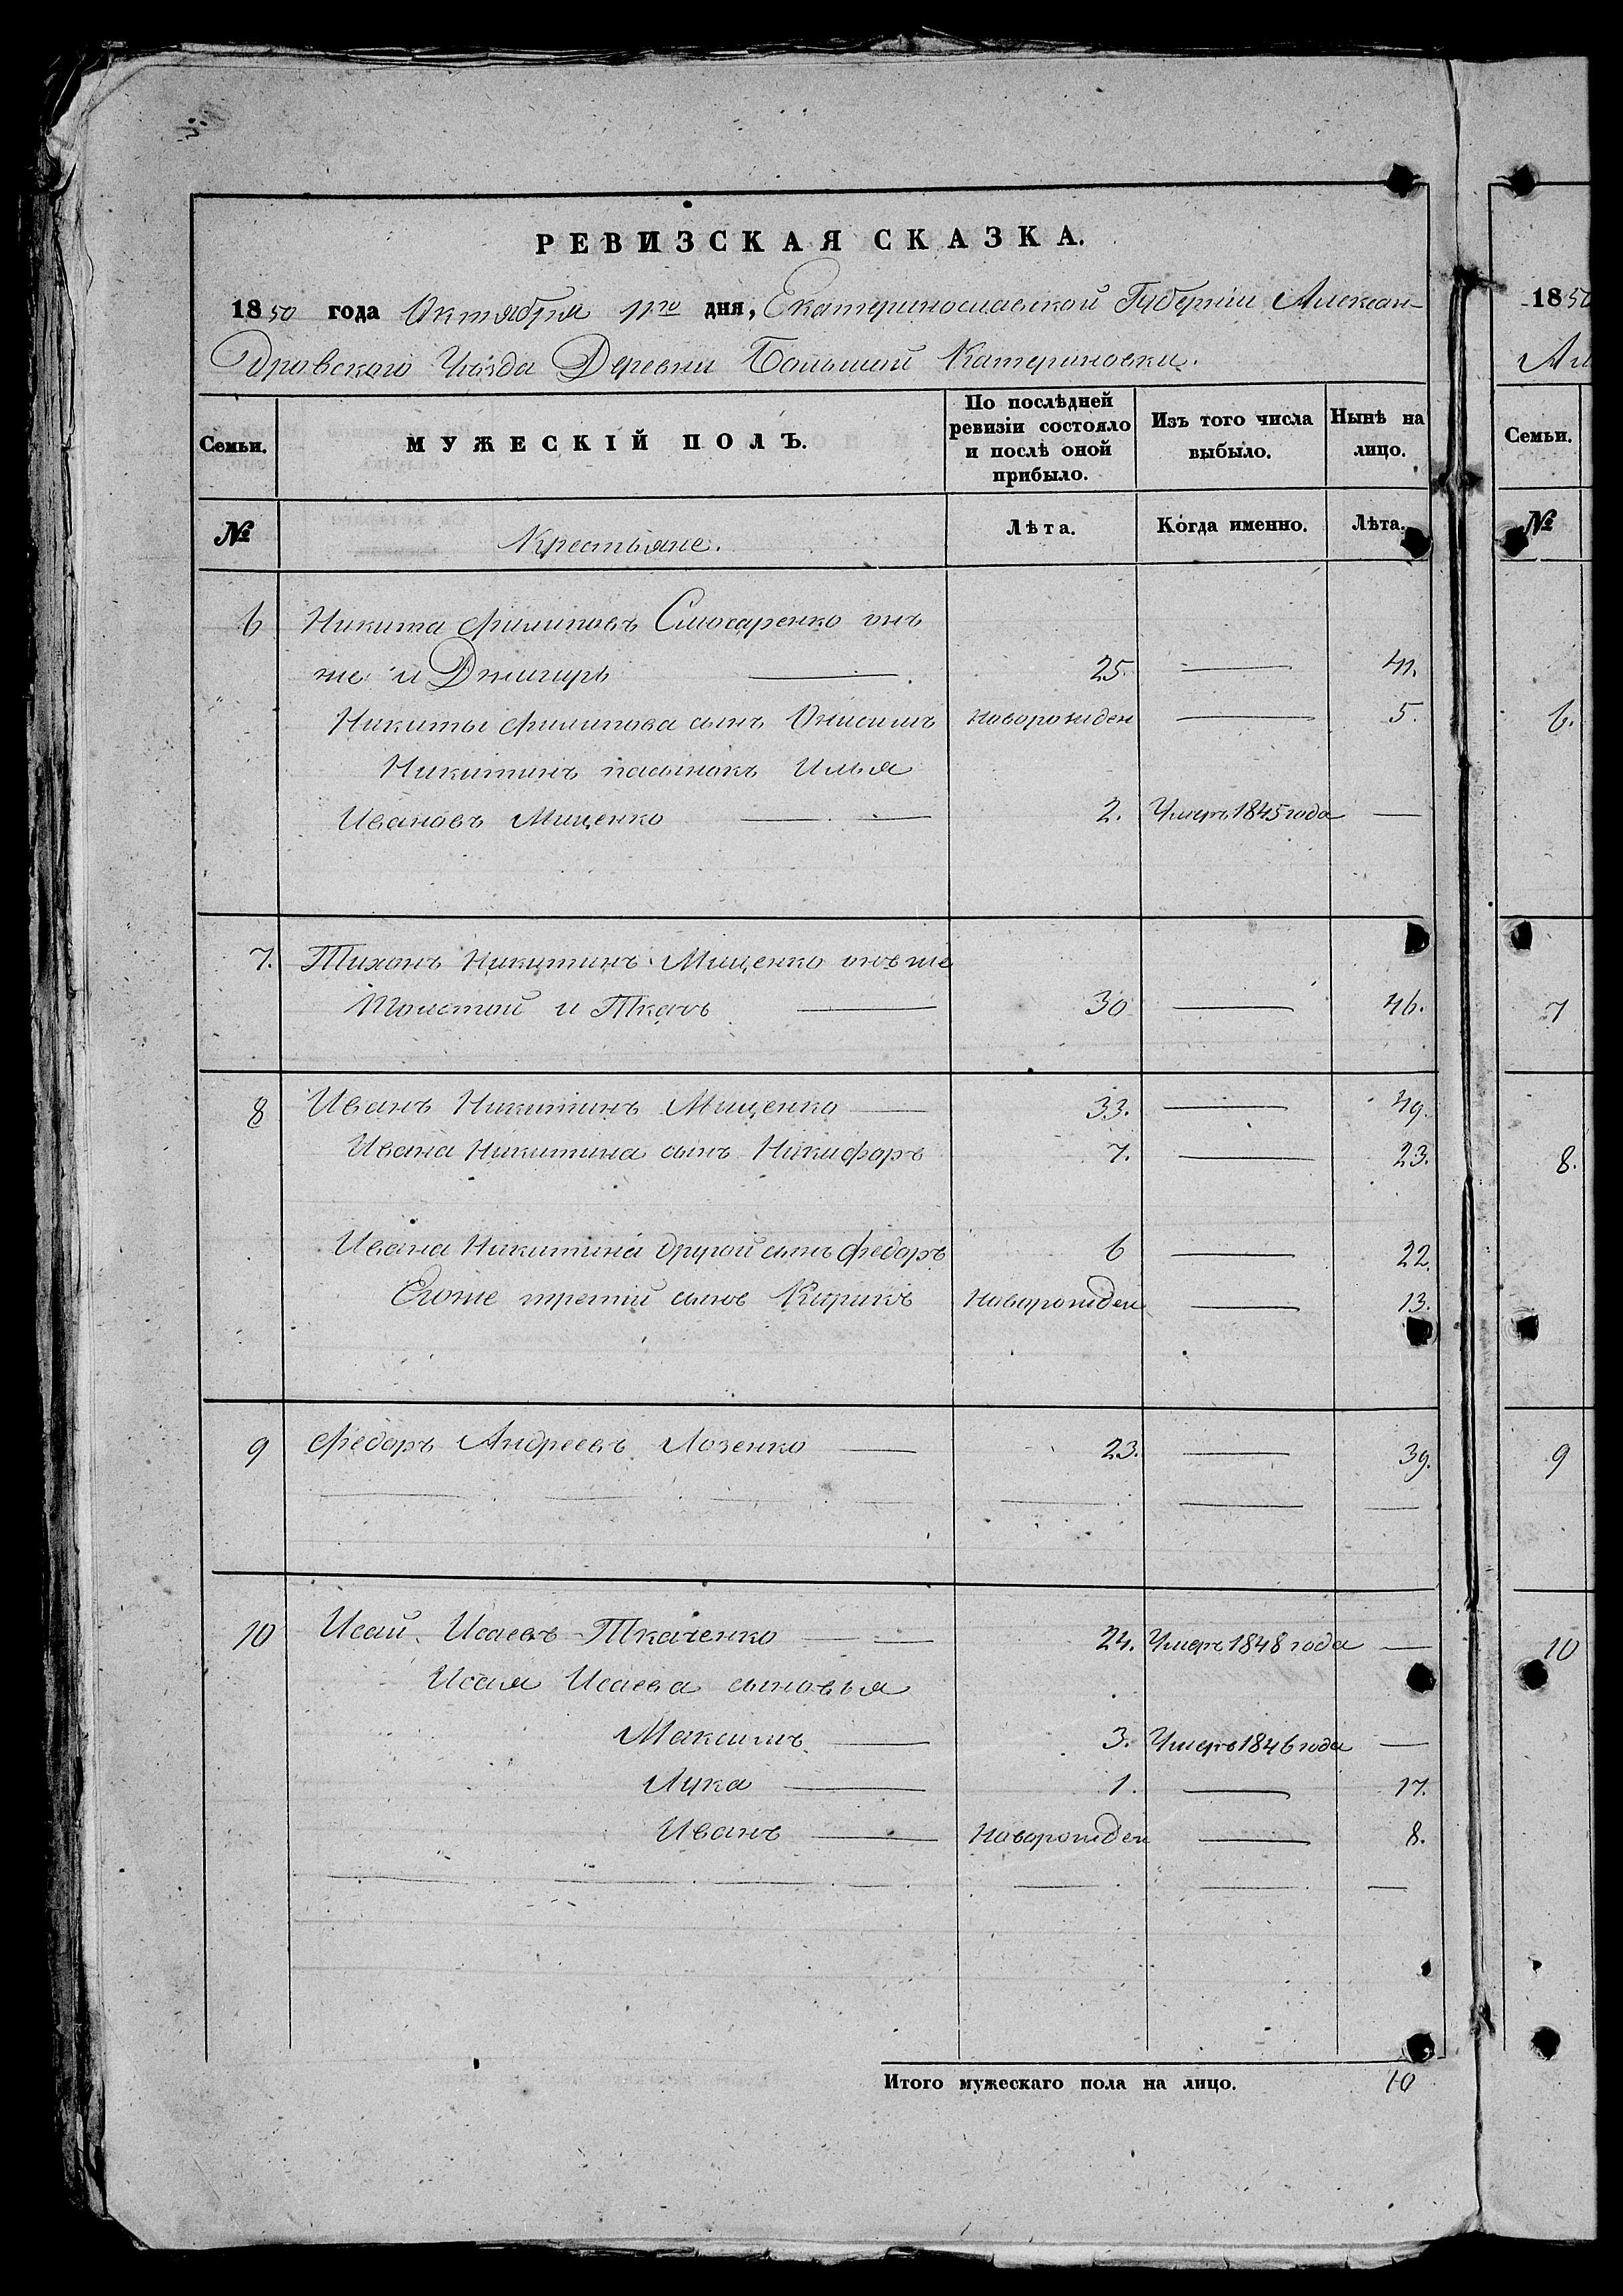 РЕВИЗСКАЯ СКАЗКА.
1850 года Октября 11го дня, Екатеринославской Губерніи Алексан-
дровского Уѣзда Деревни Большой Катериновки.
Семьи. МУЖЕСКІЙ ПОЛЪ. По послѣдней ревизіи состояло и послѣ оной прибыло. Изъ того числа выбыло. Нынѣ на лицо.
№ Крестьяне. Лѣта. Когда именно. Лѣта.
6 Никита Филиповъ Слюсаренко онъ
же и Джигирь 25. 41.
Никиты Филипова сынъ Онисимъ новорожден 5.
Никитинъ пасынокъ Илья
Ивановъ Мищенко 2. Умеръ 1845 года
7. Тихонъ Никитинъ Мищенко онъ же
Толстой и Ткачъ 30 46.
8 Иванъ Никитинъ Мищенко 33. 49.
Ивана Никитина сынъ Никифоръ 7. 23.
Ивана Никитина другой сынъ Федоръ 6 22.
Егоже третій сынъ Кирикъ Новорожден 13.
9 Федоръ Андреевъ Лозенко 23. 39.
10 Исай Исаевъ Ткаченко 24. Умеръ 1848 года
Исая Исаева сыновья
Максимъ 3. Умеръ 1846 года
Лука 1. 17.
Иванъ Новорожден 8.
Итого мужескаго пола на лицо. 10
1850
Ал
Семьи.
№
6.
7
8.
9
10